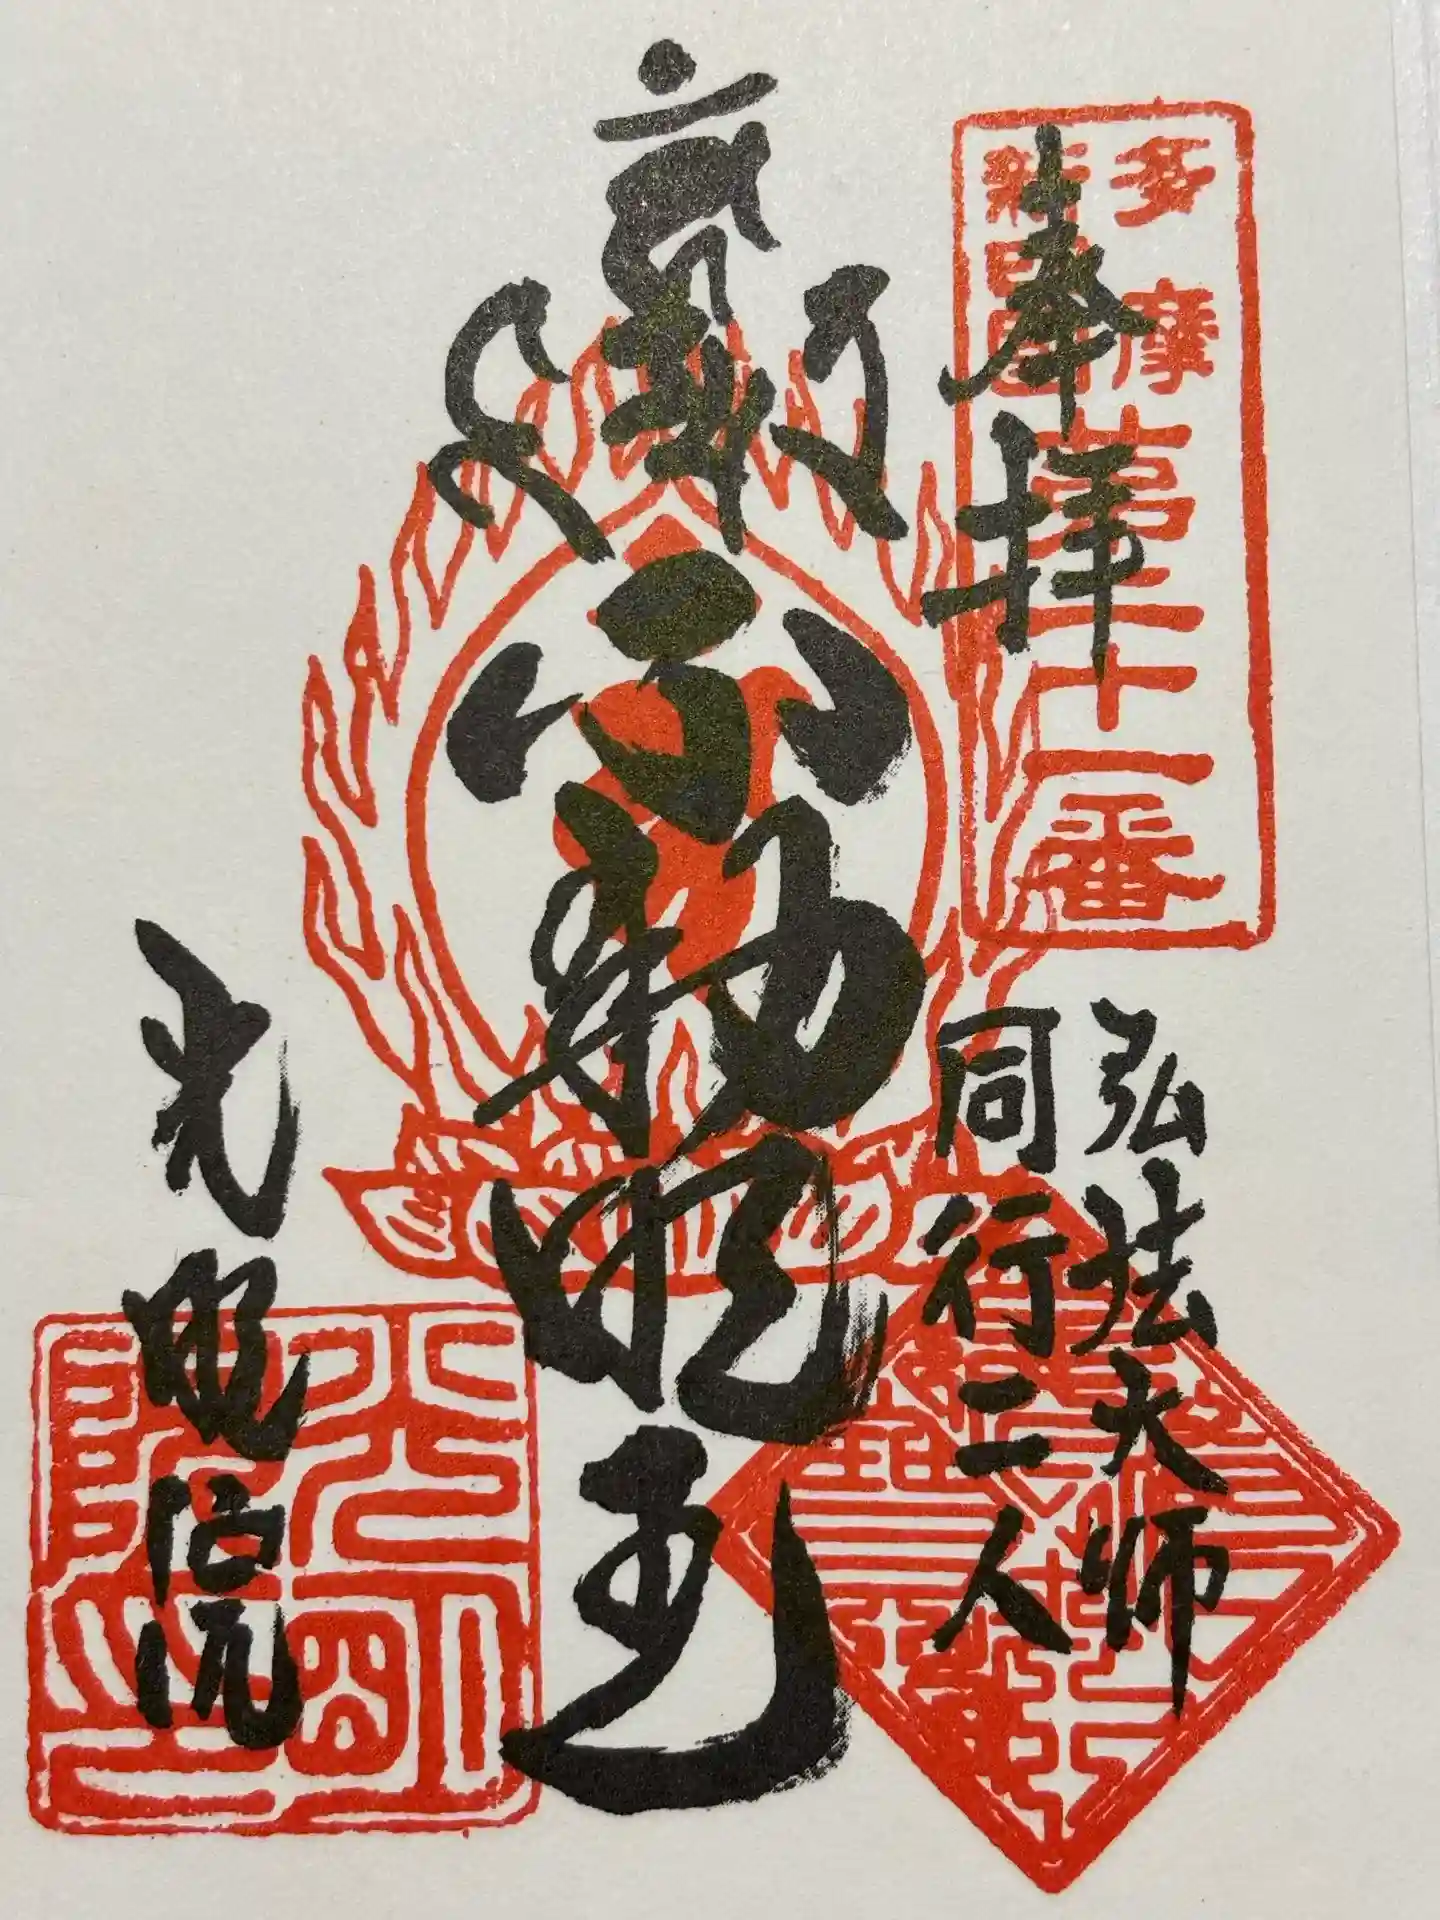 奉拝
多摩
新四国
第二十一番
弘法大師
同行二人
不動明王
光明院